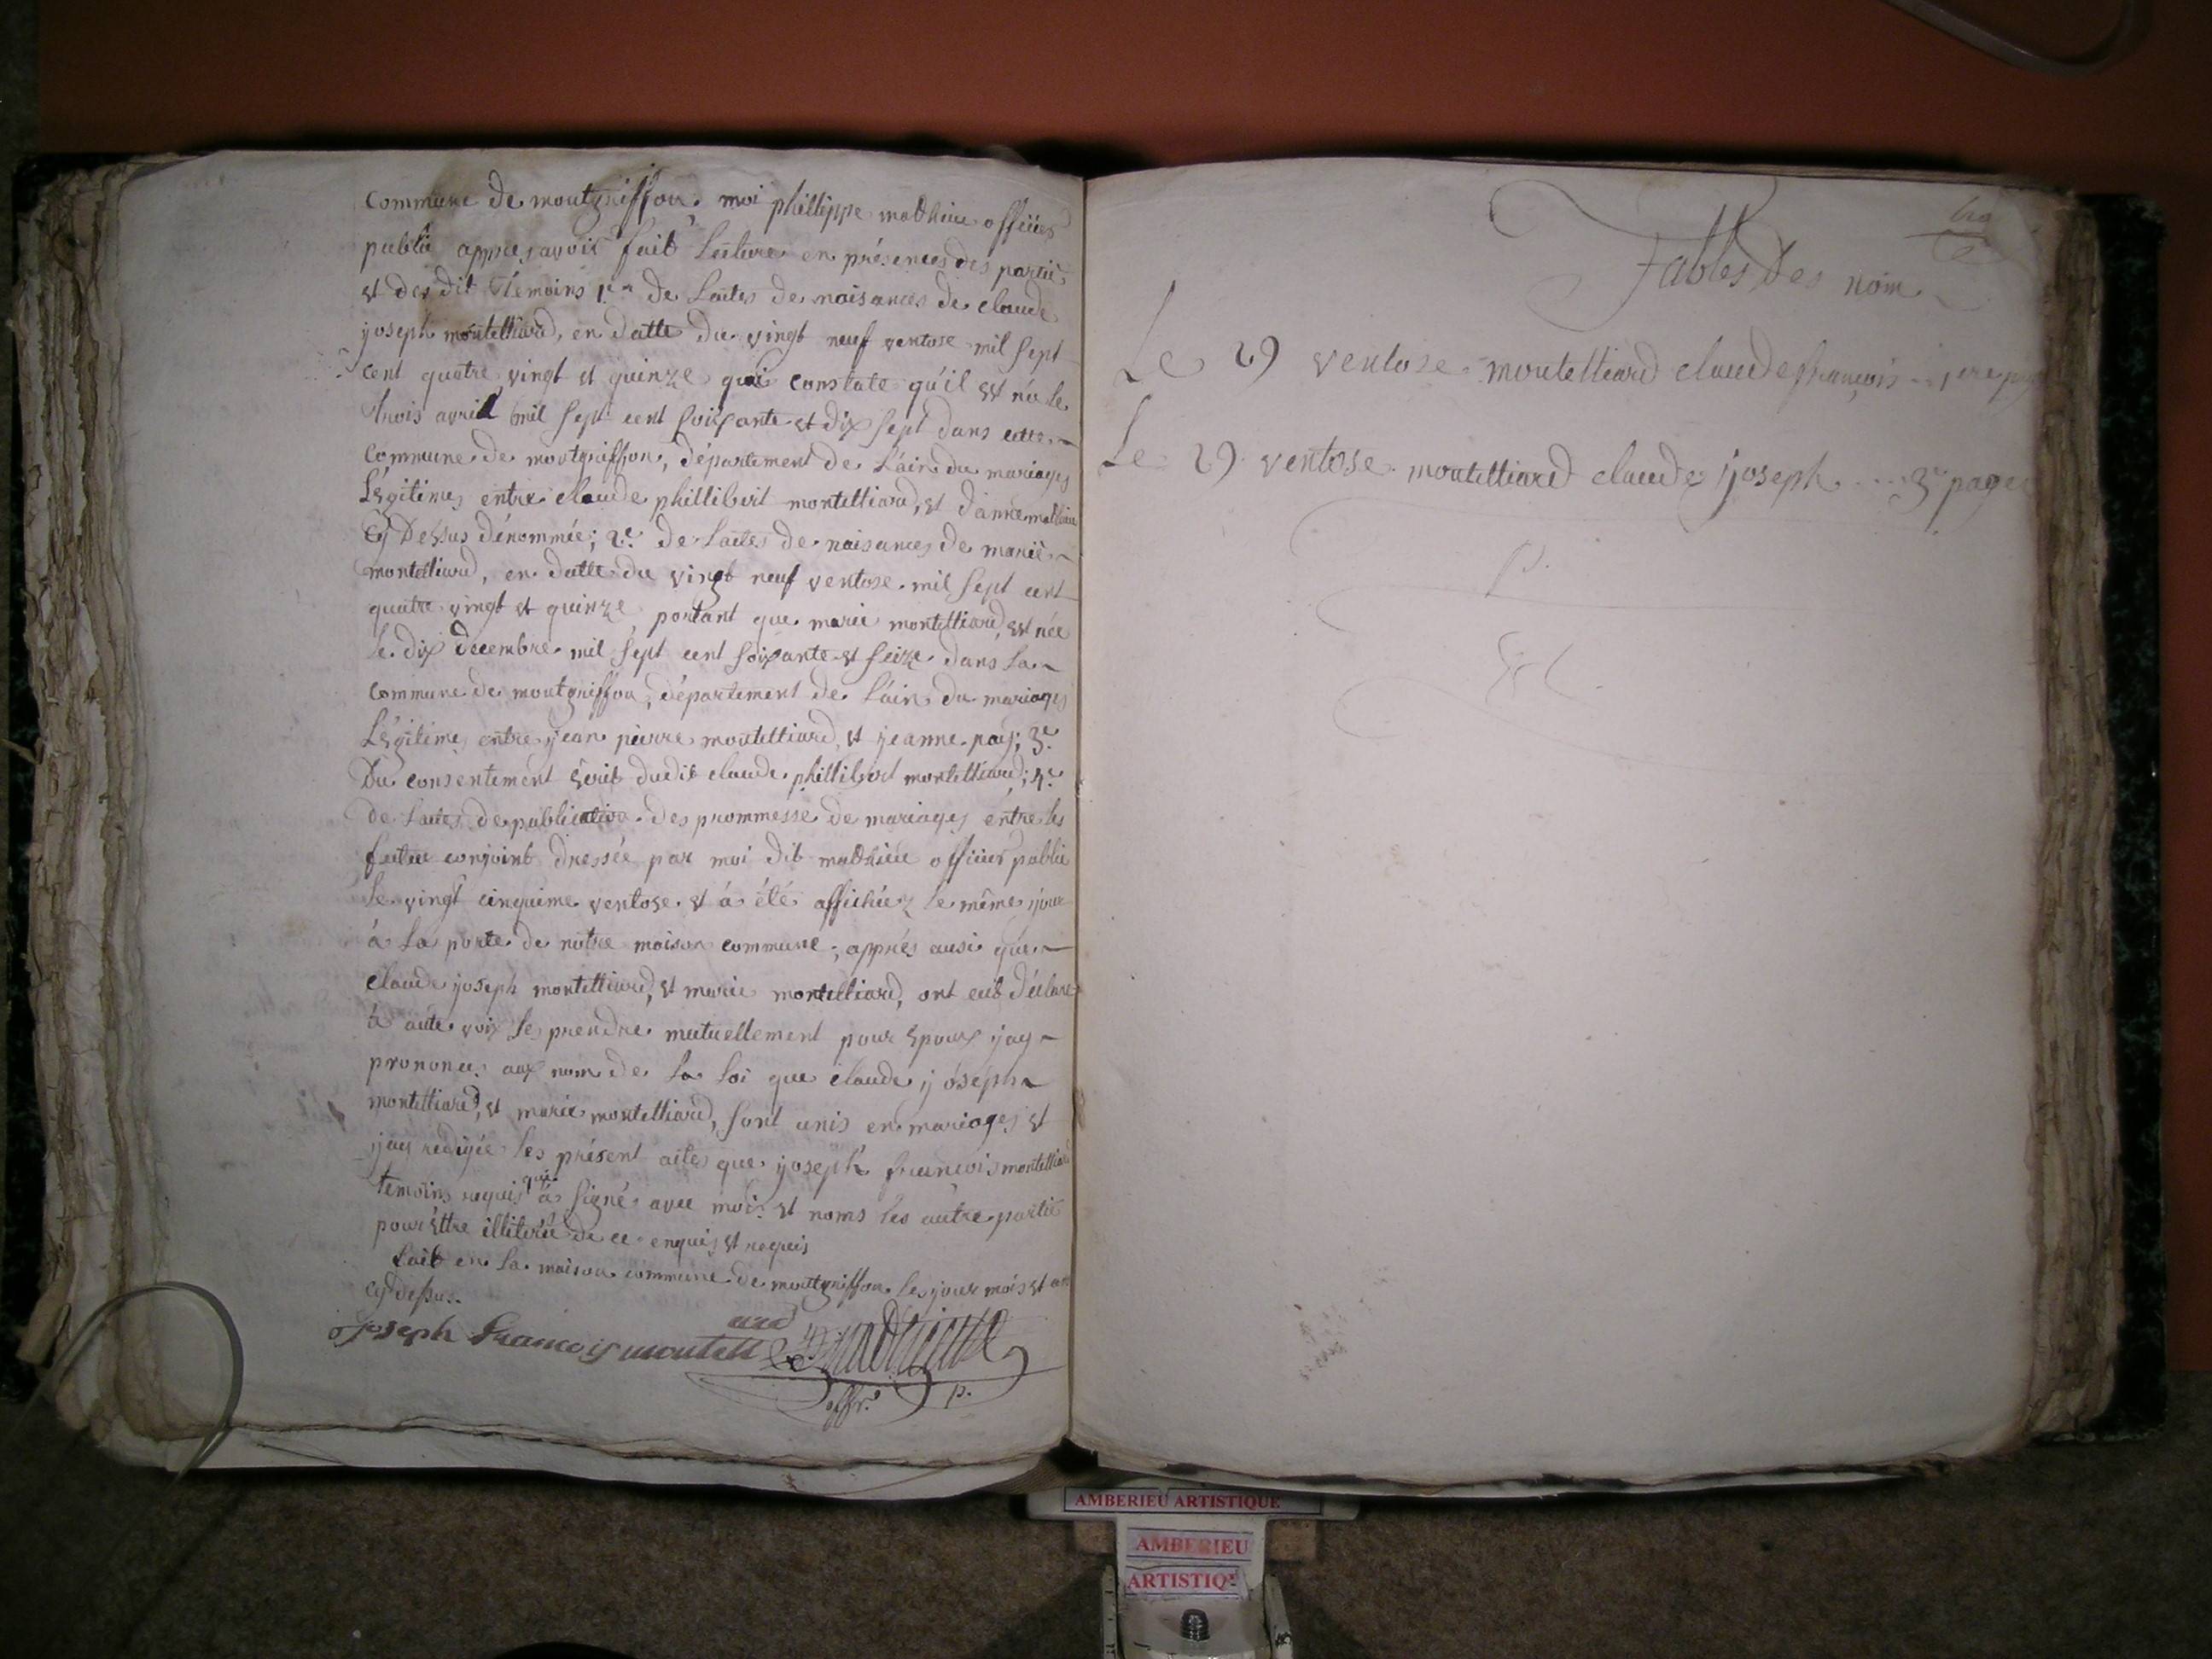 commune de montgriffon, moi phillippe mathieu officier
public appres avoir fait lecture en présences des partie
et des dit témoins 1.er de lactes de naisances de claude
joseph montelliard, en datte du vingt neuf ventose mil sept
cent quatre vingt et quinze qui constate qu'il est née le
trois avril mil sept cent soixante et dix sept dans cette
commune de montgriffon, département de l'ain du mariages
légitimes entre claude phillibert montelliard, et d'anne mathieu
cy dessus dénommée; 2.e de lactes de naisances de marie
montelliard, en datte du vingt neuf ventose mil sept cent
quatre vingt et quinze, portant que marie montelliard, est née
le dix decembre mil sept cent soixante et seize dans la
commune de montgriffon, département de l'ain du mariages
légitimes entre jean pierre montelliard, et jeanne pay; 3.e
du consentement écrit dudit claude phillibert montelliard; 4.e
de lactes de publication des prommesse de mariages entre les
futur conjoint dressée par moi dit mathieu officier public
le vingt cinquime ventose et á été affichéez le même jour
á la porte de notre maison commune; apprés ausi que
claude joseph montelliard, et marie montelliard, ont eut déclaré
á aute voix se prendre mutuellement pour époux jay
prononcé aux nom de la loi que claude joseph
montelliard, et marie montelliard, sont unis en mariages et
jay redigée les présent actes que joseph francois montelliard
temoins requis qui á signé avec moi et noms les autre partie
pour éttre illiterée de ce enquis et requis
fait en la maison commune de montgriffon les jour mois et an
cy dessus.
joseph francois montelliard mathieu
offr. p.
Tables des nom
Le 29 ventose montelliard claude françois 1ere page
Le 29 ventose montelliard claude joseph .... 3e page